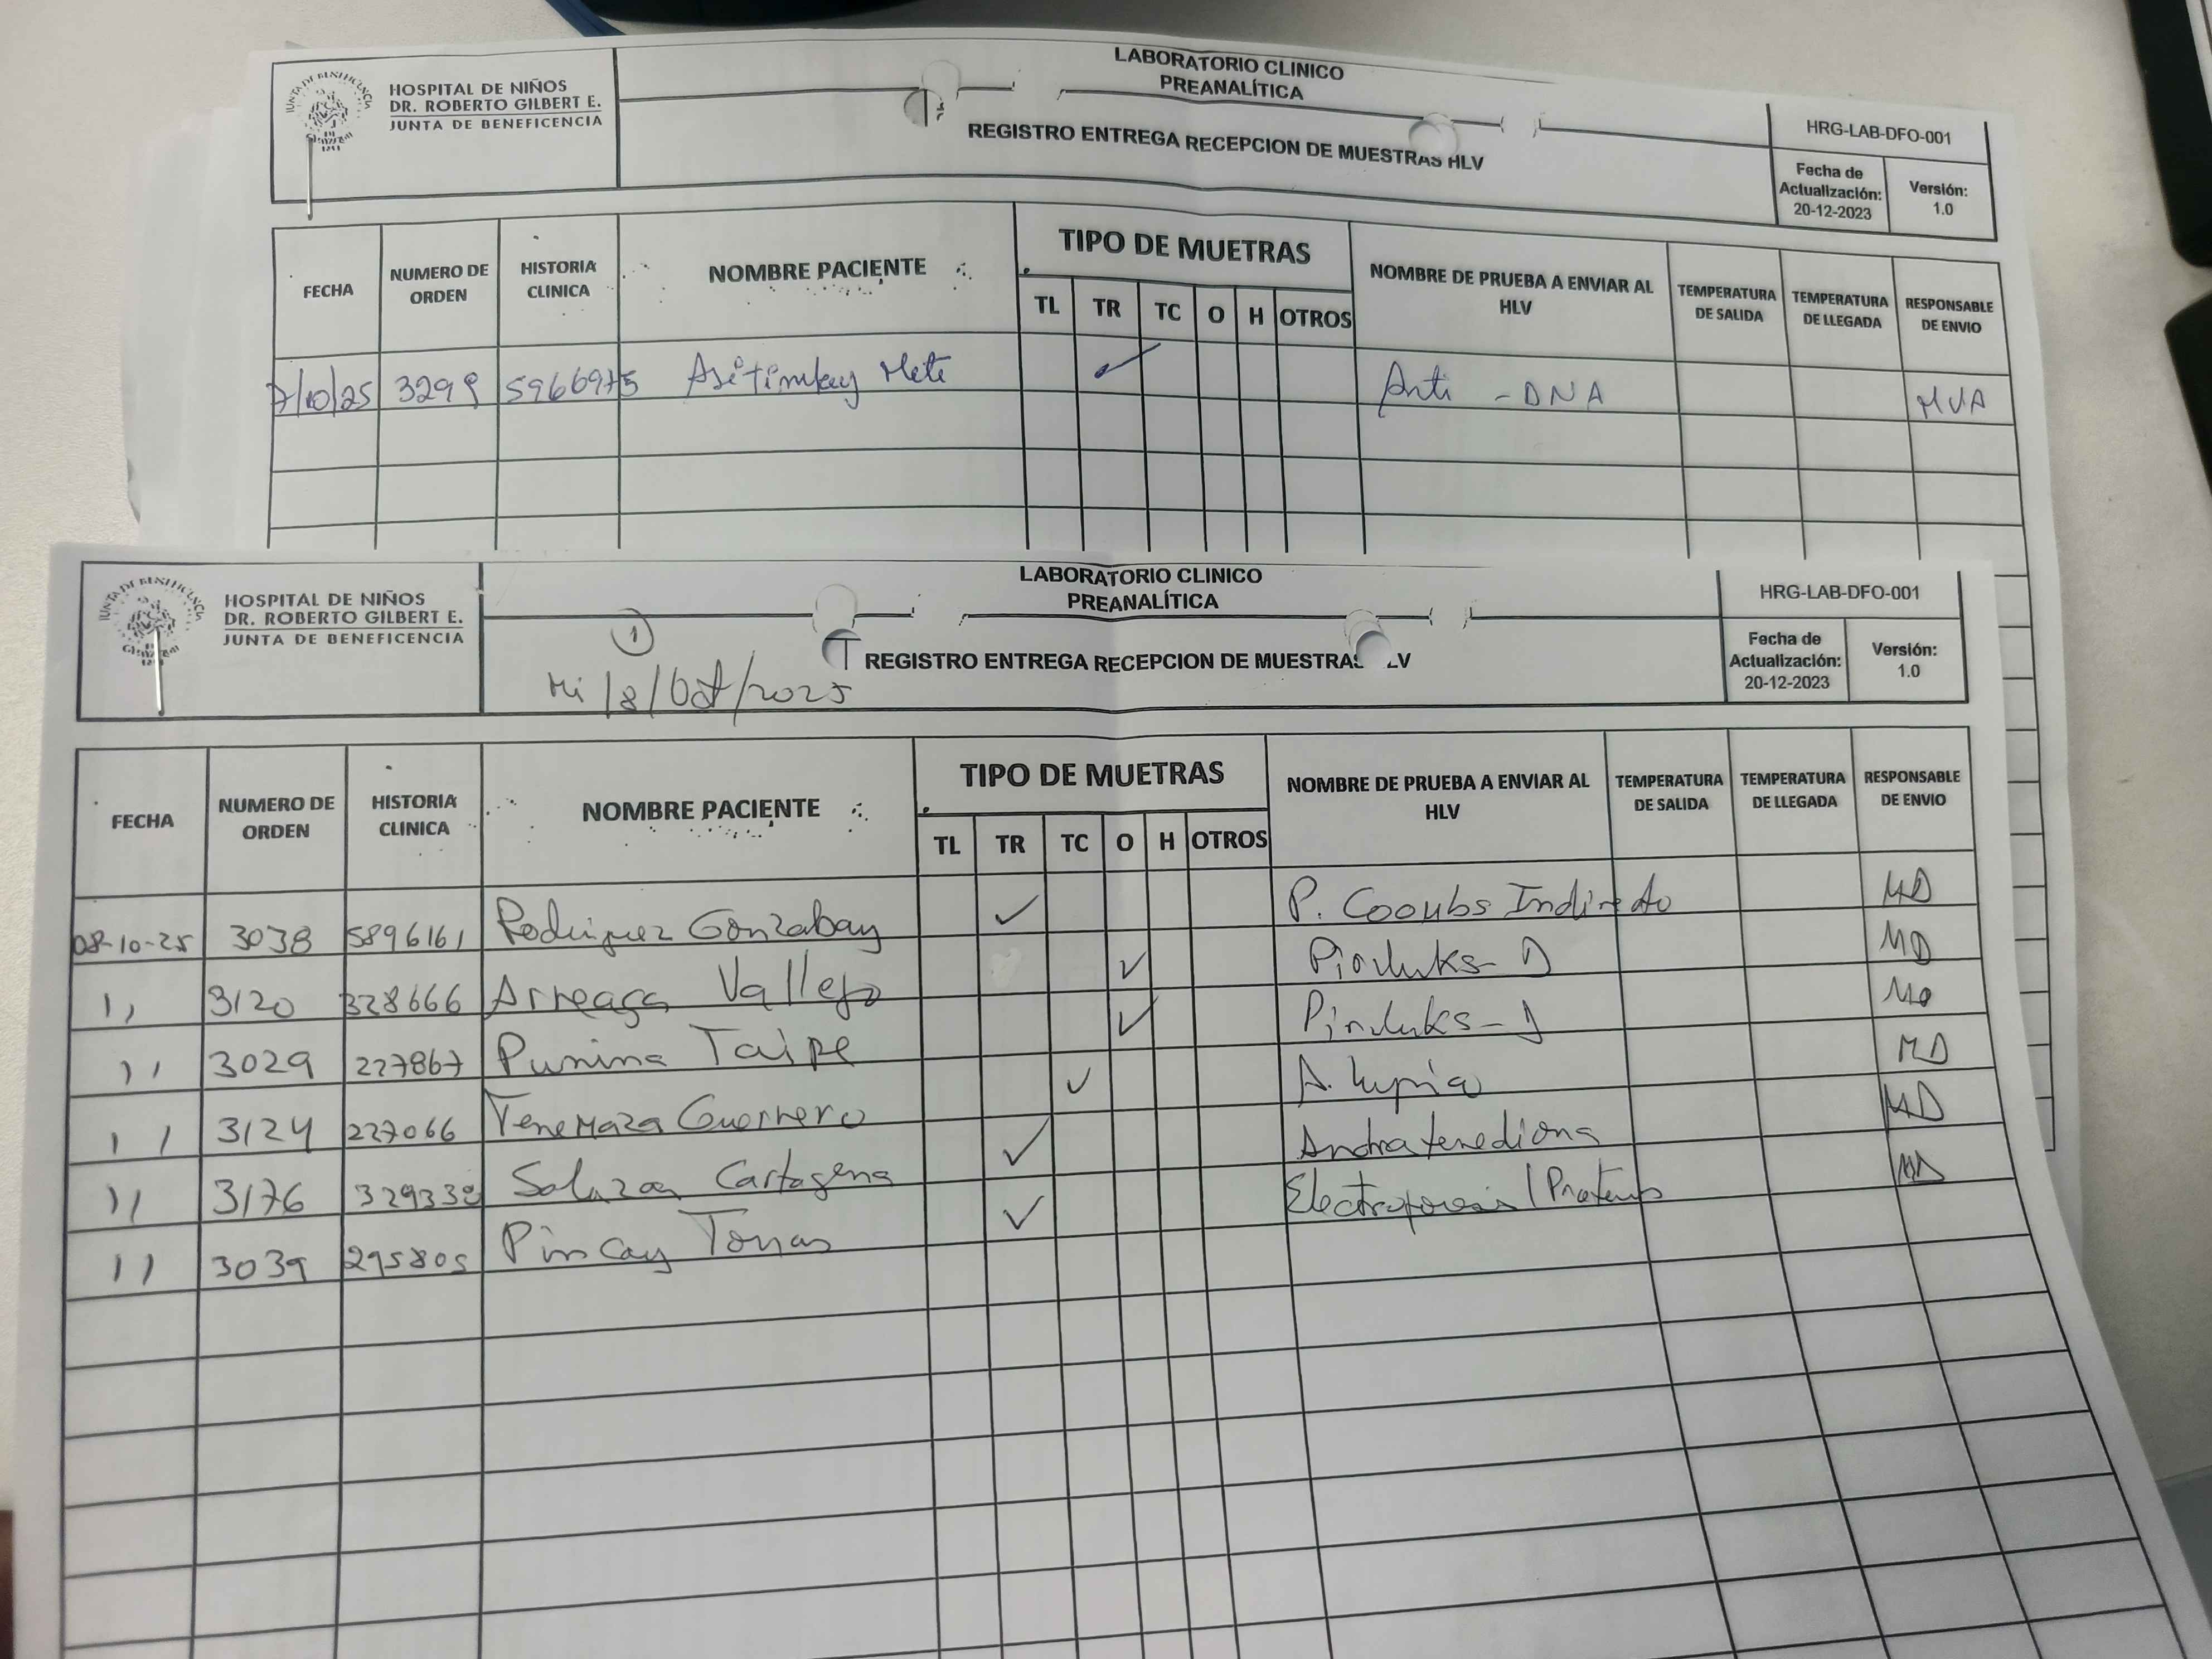 HOSPITAL DE NIÑOS
DR. ROBERTO GILBERT E.
JUNTA DE BENEFICENCIA
LABORATORIO CLINICO
PREANALÍTICA
REGISTRO ENTREGA RECEPCION DE MUESTRAS HLV
HRG-LAB-DFO-001
Fecha de Actualización: 20-12-2023
Versión: 1.0
FECHA NUMERO DE ORDEN HISTORIA CLINICA NOMBRE PACIENTE TIPO DE MUETRAS NOMBRE DE PRUEBA A ENVIAR AL HLV TEMPERATURA DE SALIDA TEMPERATURA DE LLEGADA RESPONSABLE DE ENVIO
TL TR TC O H OTROS
7/10/25 3299 5966975 Asitimbay Mete ✓ Anti - DNA MVA
JUNTA DE BENEFICENCIA
HOSPITAL DE NIÑOS
DR. ROBERTO GILBERT E.
JUNTA DE BENEFICENCIA
LABORATORIO CLINICO
PREANALÍTICA
REGISTRO ENTREGA RECEPCION DE MUESTRAS HLV
1
Mi/8/Oct/2025
HRG-LAB-DFO-001
Fecha de Actualización: 20-12-2023
Versión: 1.0
FECHA NUMERO DE ORDEN HISTORIA CLINICA NOMBRE PACIENTE TIPO DE MUETRAS NOMBRE DE PRUEBA A ENVIAR AL HLV TEMPERATURA DE SALIDA TEMPERATURA DE LLEGADA RESPONSABLE DE ENVIO
TL TR TC O H OTROS
08-10-25 3038 5896161 Rodriguez Gonzabay ✓ P. Coombs Indirecto MD
11 3120 328666 Arreaga Vallejo ✓ MD
11 3029 227867 Punina Taipe ✓ MD
11 3124 227066 Tenemaza Guerrero ✓ A. lupico MD
11 3176 329338 Salazar Cartagena ✓ Androtenediona MD
11 3039 295805 Pincay Tomas ✓ Electroforesis / Proteinas MD